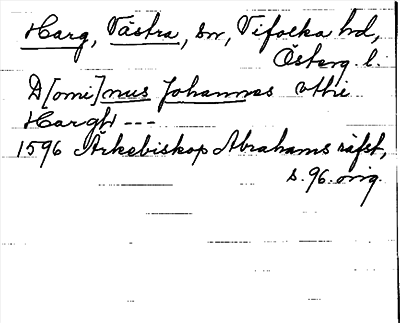 Harg, Västra, sn, Vifolka hd,
Österg. l.
D[omi]nus Johannes vthi
Hargh ---
1596 Ärkebiskop Abrahams räfst,
s. 96. orig.